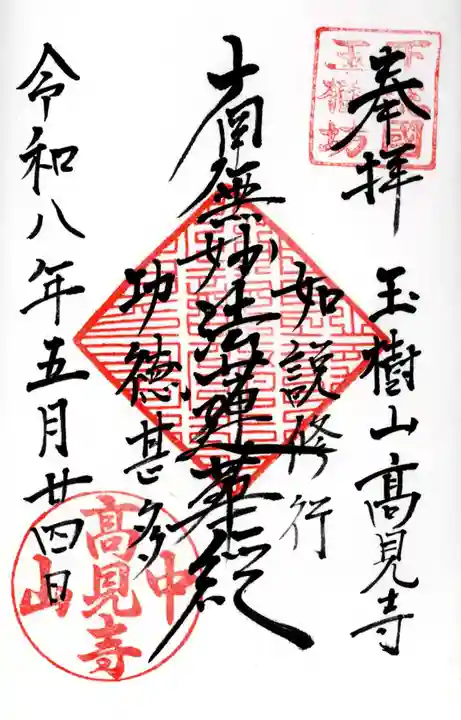 奉拝
玉樹山高見寺
如説修行
南無妙法蓮華経
功徳甚多
令和八年五月廿四日
中山
高見寺